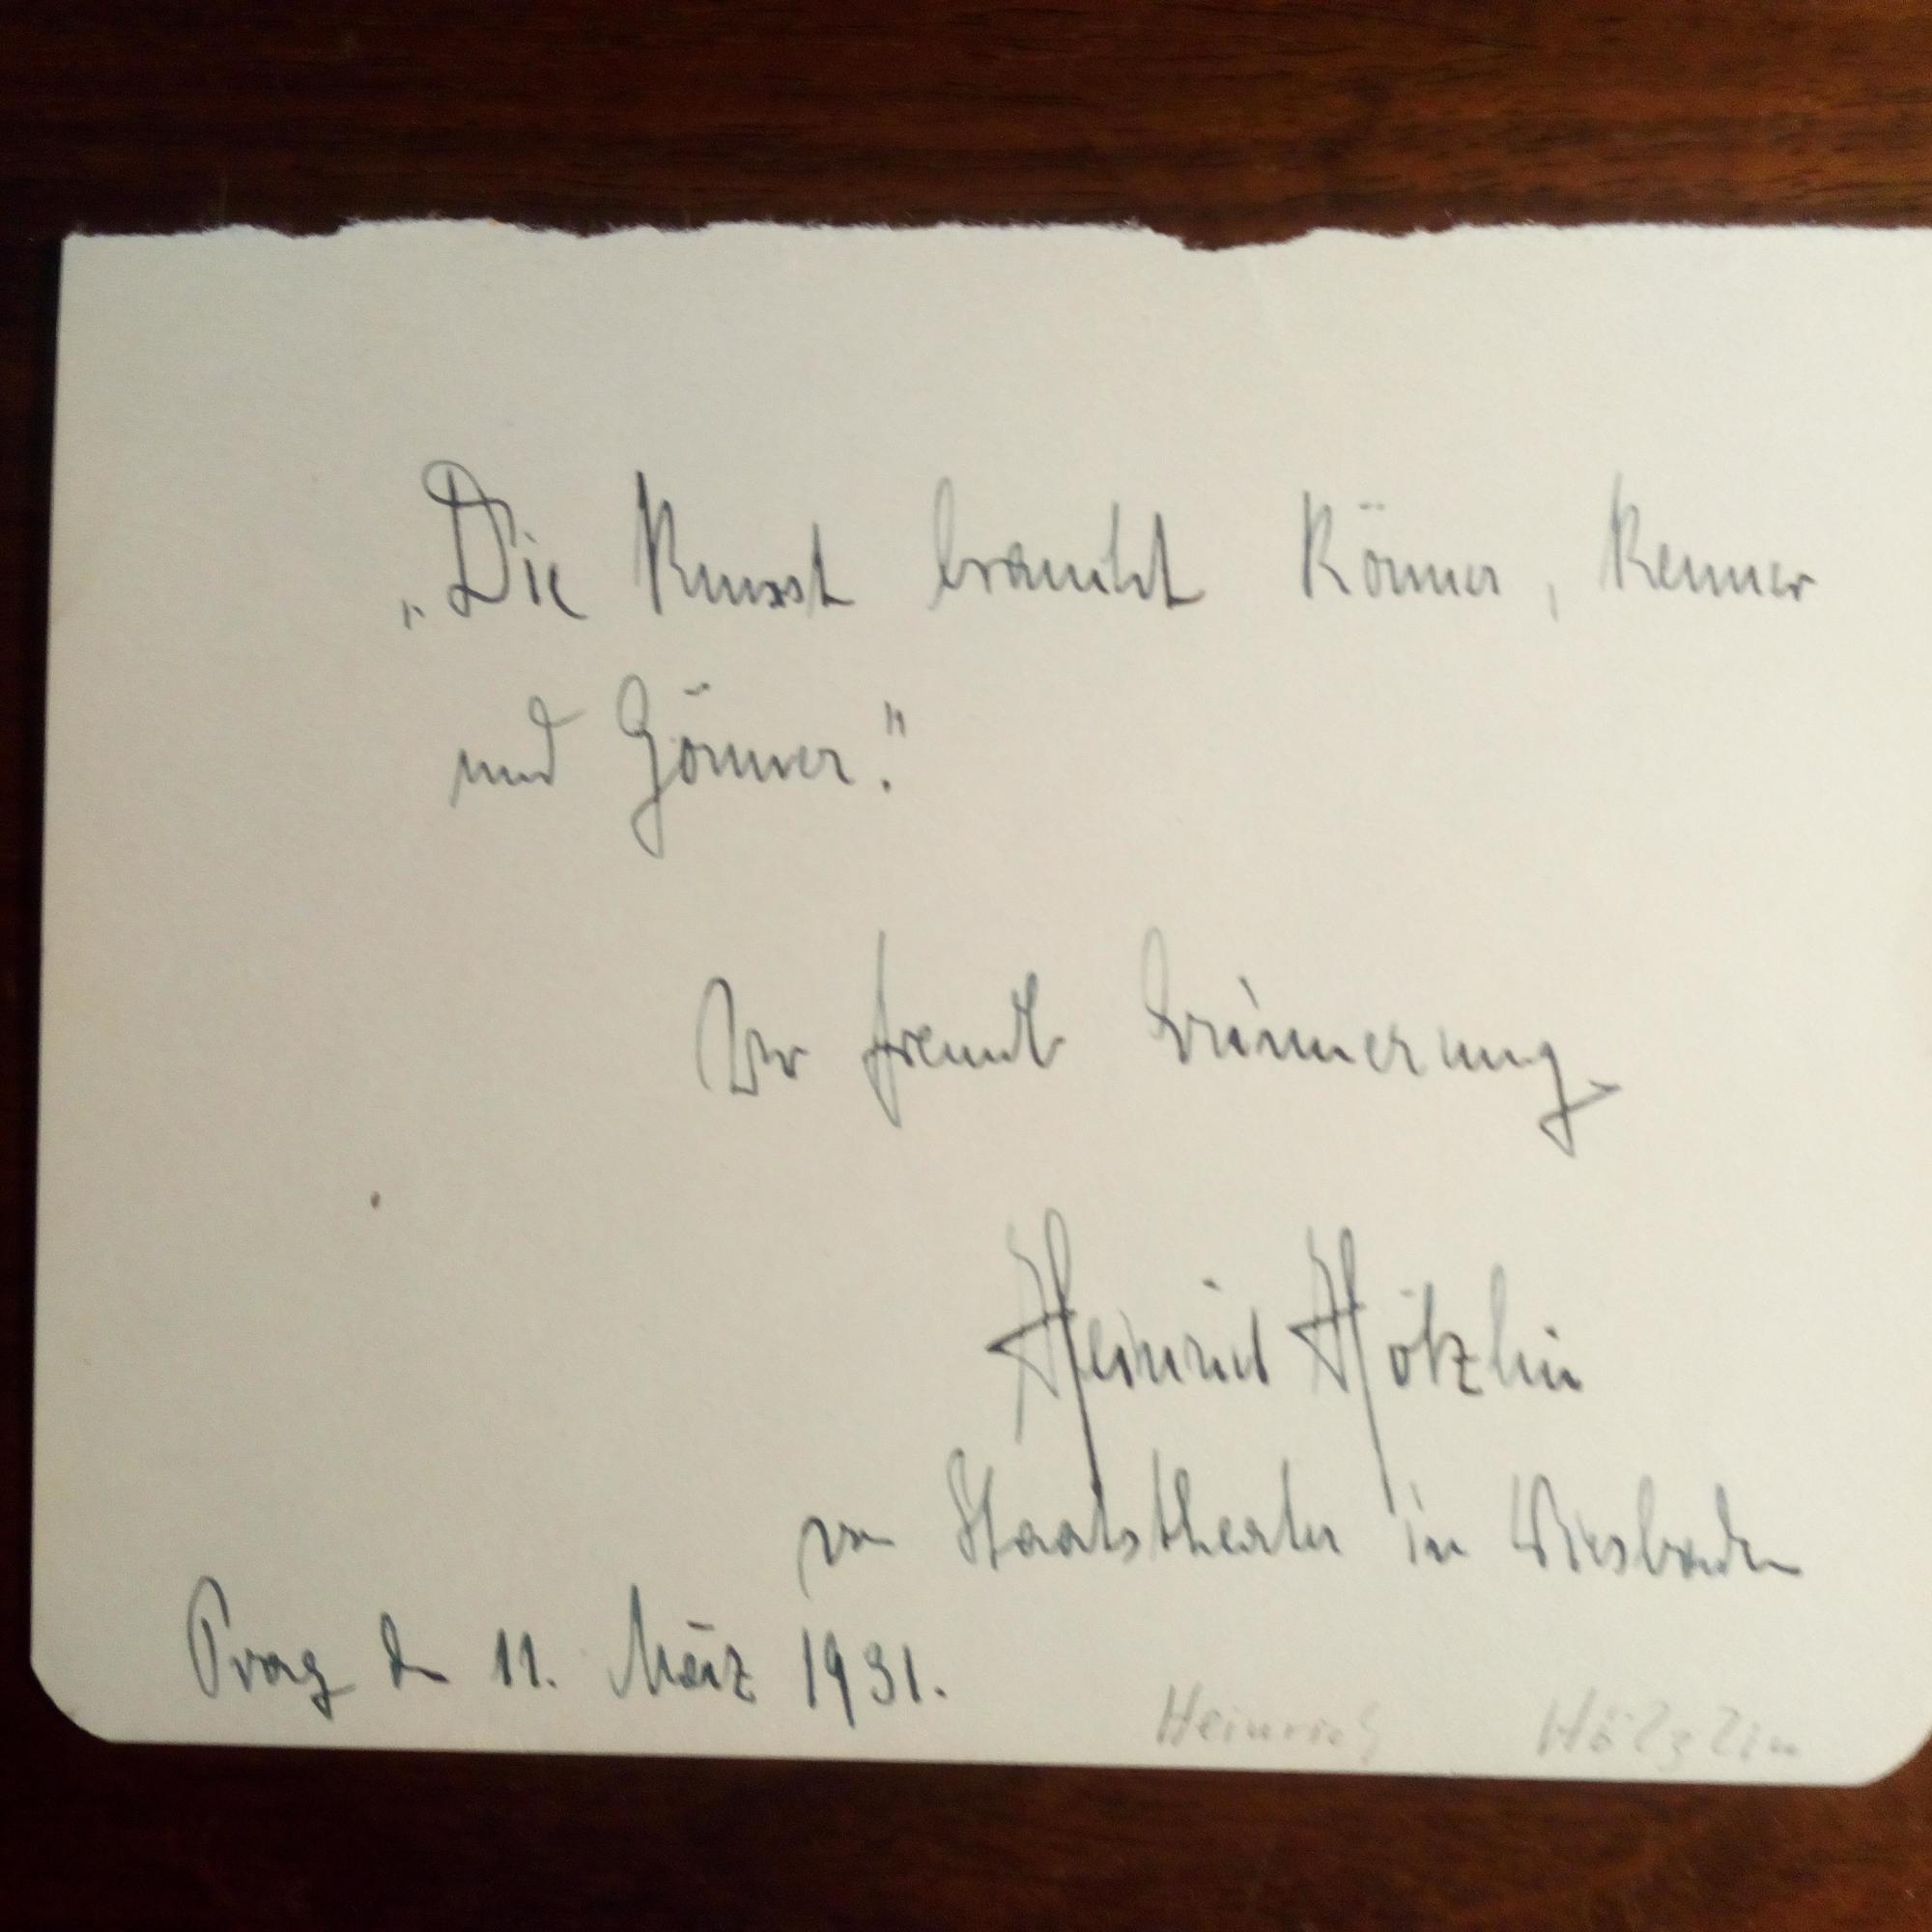 „Die Kunst braucht Könner, Kenner
und Gönner."
Zur freundl. Erinnerung
Heinrich Hölzlin
vom Staatstheater in Wiesbaden
Prag den 11. März 1931.
Heinrich Hölzlin